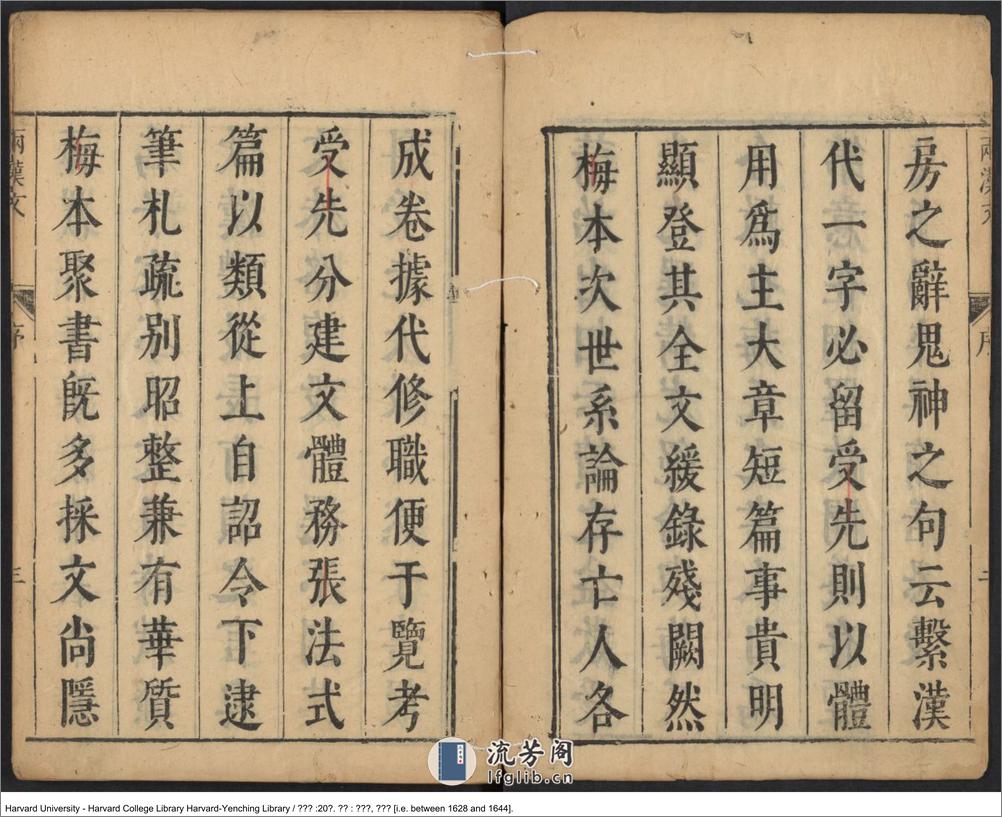 兩漢文
序
二
房之辭鬼神之句云繫漢
代一字必留受先則以體
用爲主大章短篇事貴明
顯登其全文緩錄殘闕然
梅本次世系論存亡人各
成卷據代修職便于覽考
受先分建文體務張法式
篇以類從上自詔令下逮
筆札疏別昭整兼有華質
梅本聚書旣多採文尚隱
兩漢文
序
三
流芳阁
lfglib.cn
Harvard University - Harvard College Library Harvard-Yenching Library / ??? :20?. ?? : ???, ??? [i.e. between 1628 and 1644].